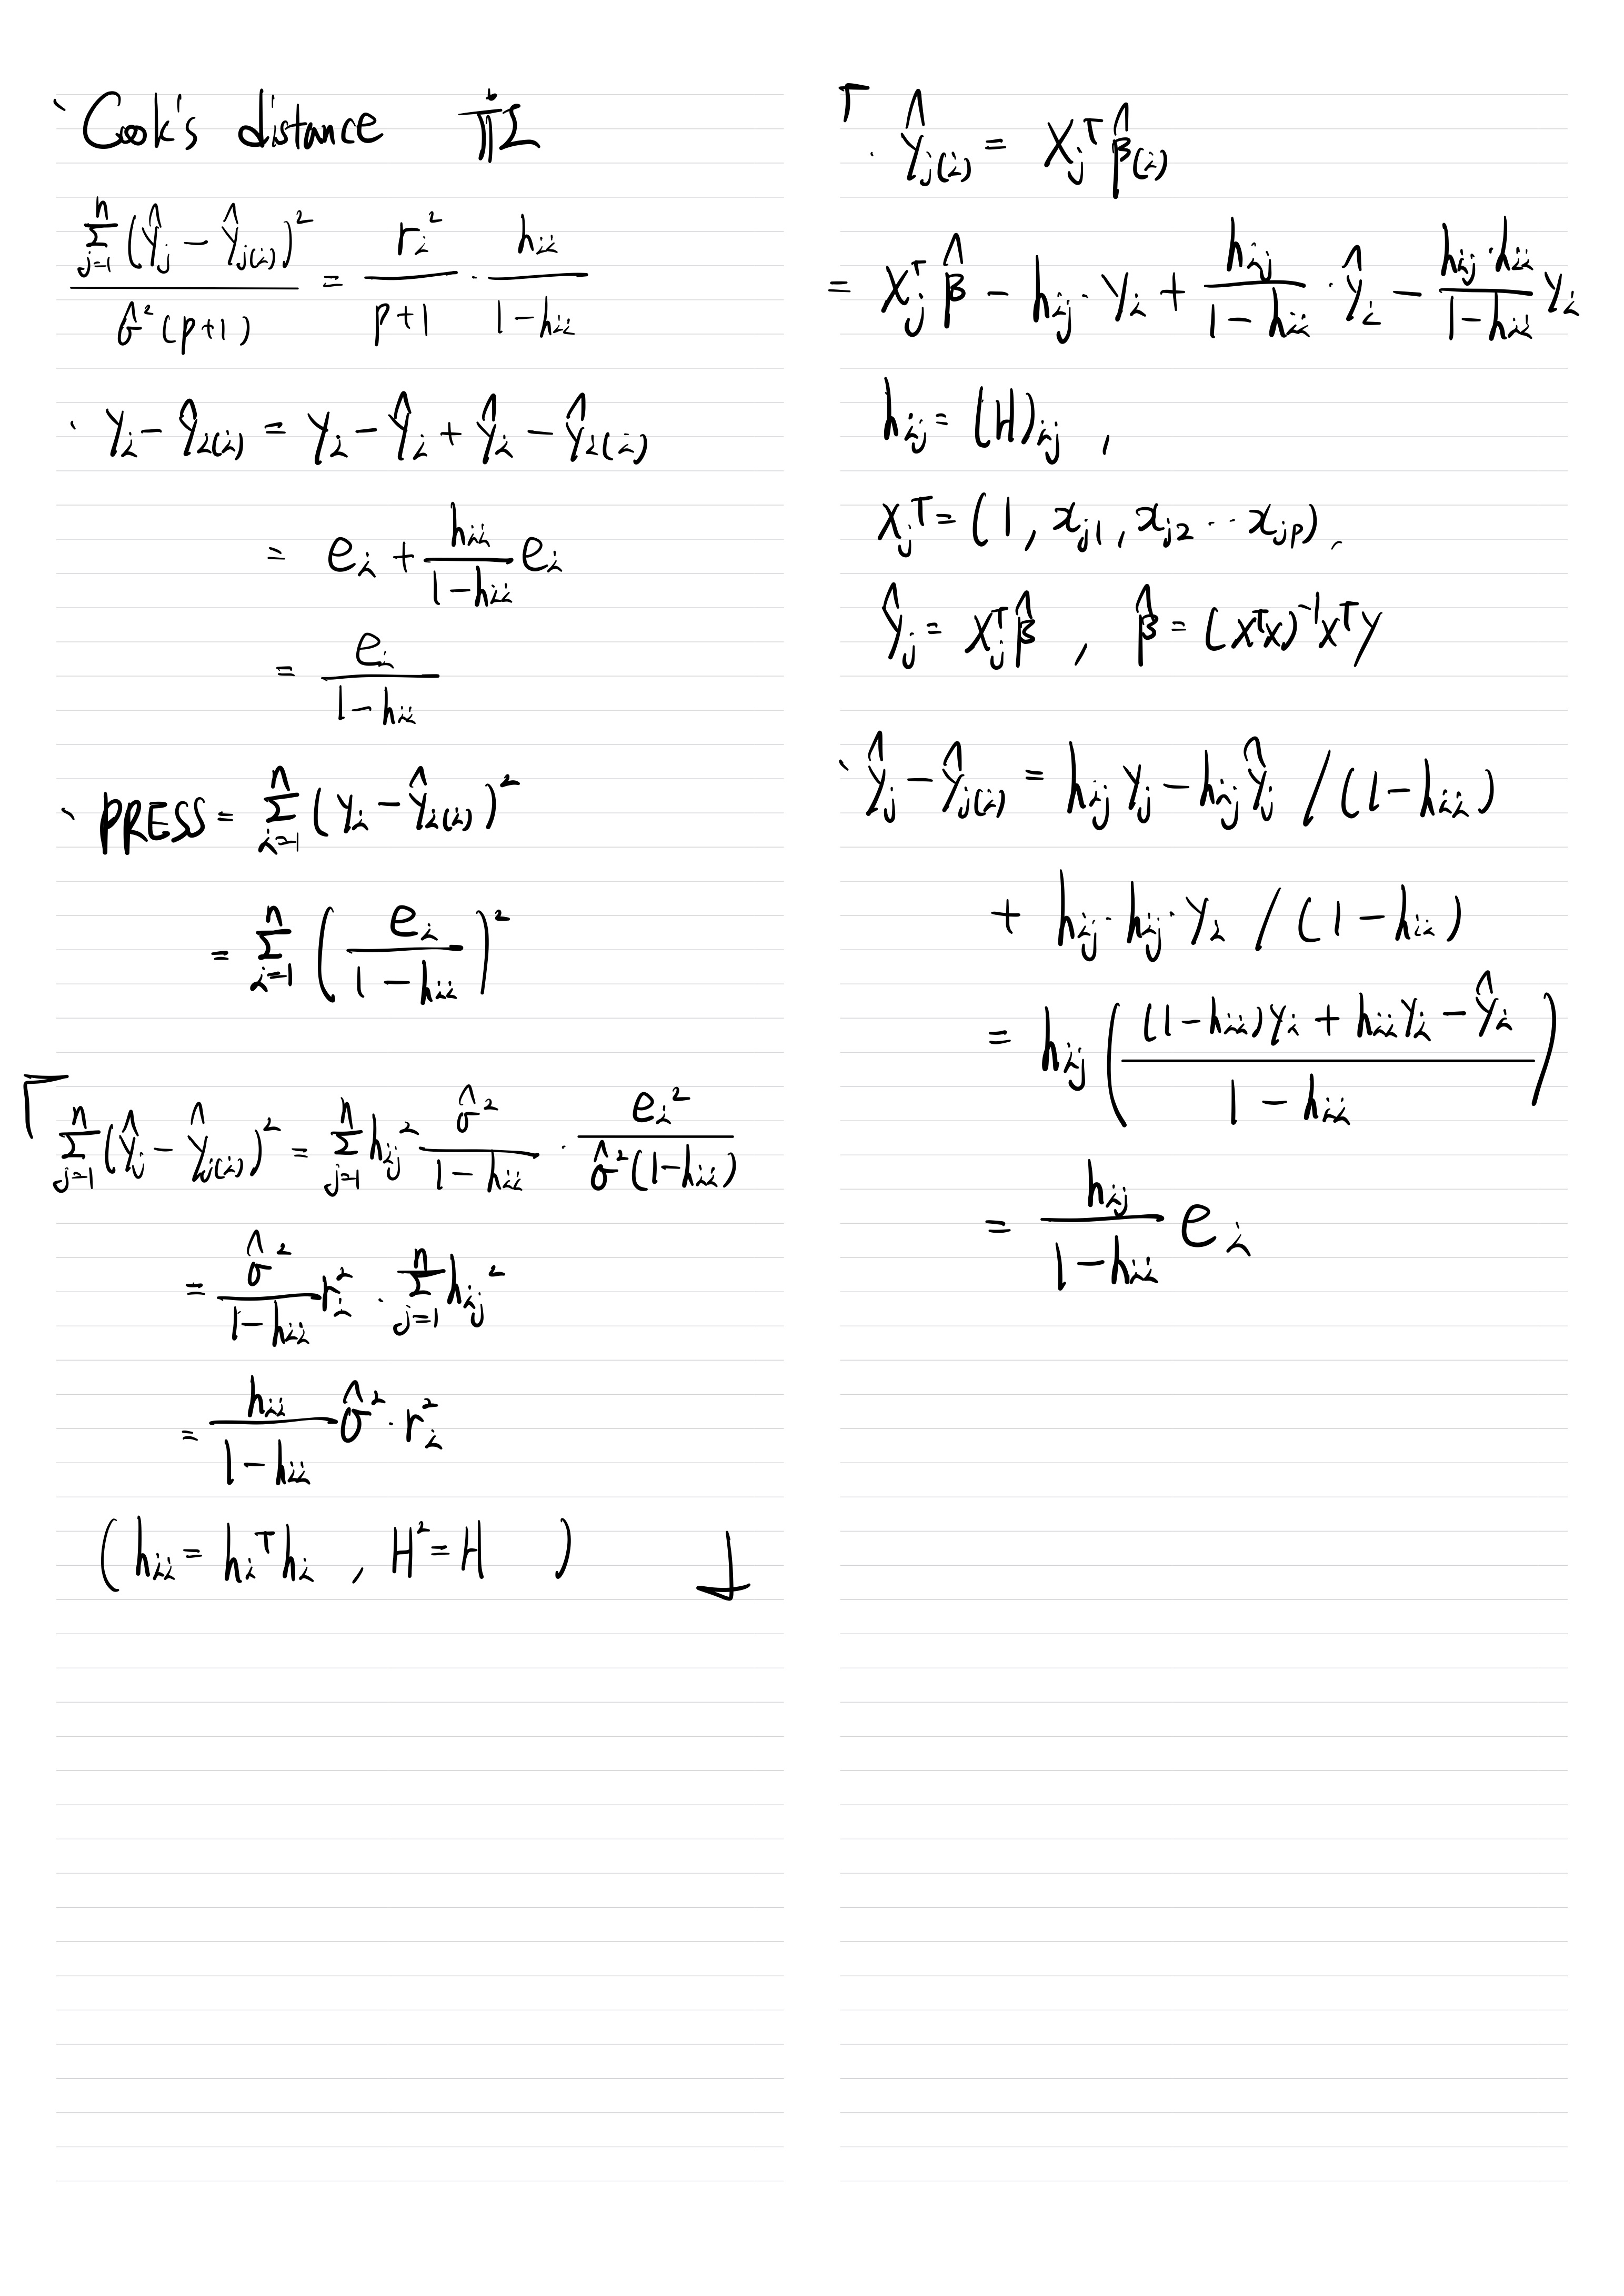 Cook's distance 유도
\frac{\sum_{j=1}^{n} (\hat{y}_j - \hat{y}_{j(i)})^2}{\hat{\sigma}^2 (p+1)} = \frac{r_i^2}{p+1} \cdot \frac{h_{ii}}{1-h_{ii}}
· y_i - \hat{y}_{i(i)} = y_i - \hat{y}_i + \hat{y}_i - \hat{y}_{i(i)}
= e_i + \frac{h_{ii}}{1-h_{ii}} e_i
= \frac{e_i}{1-h_{ii}}
· PRESS = \sum_{i=1}^{n} (y_i - \hat{y}_{i(i)})^2
= \sum_{i=1}^{n} \left( \frac{e_i}{1-h_{ii}} \right)^2
「 \sum_{j=1}^{n} (\hat{y}_j - \hat{y}_{j(i)})^2 = \sum_{j=1}^{n} h_{ij}^2 \frac{\hat{\sigma}^2}{1-h_{ii}} \cdot \frac{e_i^2}{\hat{\sigma}^2 (1-h_{ii})}
= \frac{\hat{\sigma}^2}{1-h_{ii}} r_i^2 \cdot \sum_{j=1}^{n} h_{ij}^2
= \frac{h_{ii}}{1-h_{ii}} \hat{\sigma}^2 \cdot r_i^2
( h_{ii} = h_i^T h_i , H^2 = H ) 」
「 · \hat{y}_{j(i)} = X_j^T \hat{\beta}_{(i)}
= X_j^T \hat{\beta} - h_{ij} \cdot y_i + \frac{h_{ij}}{1-h_{ii}} \cdot \hat{y}_i - \frac{h_{ij} \cdot h_{ii}}{1-h_{ii}} y_i
h_{ij} = (H)_{ij} ,
X_j^T = (1, x_{j1}, x_{j2} \cdots x_{jp}),
\hat{y}_j = X_j^T \hat{\beta} , \hat{\beta} = (X^T X)^{-1} X^T y
· \hat{y}_j - \hat{y}_{j(i)} = h_{ij} y_j - h_{ij} \hat{y}_j / (1-h_{ii})
+ h_{ij} \cdot h_{ij} \cdot y_i / (1-h_{ii})
= h_{ij} \left( \frac{(1-h_{ii}) y_i + h_{ii} y_i - \hat{y}_i}{1-h_{ii}} \right)
= \frac{h_{ij}}{1-h_{ii}} e_i